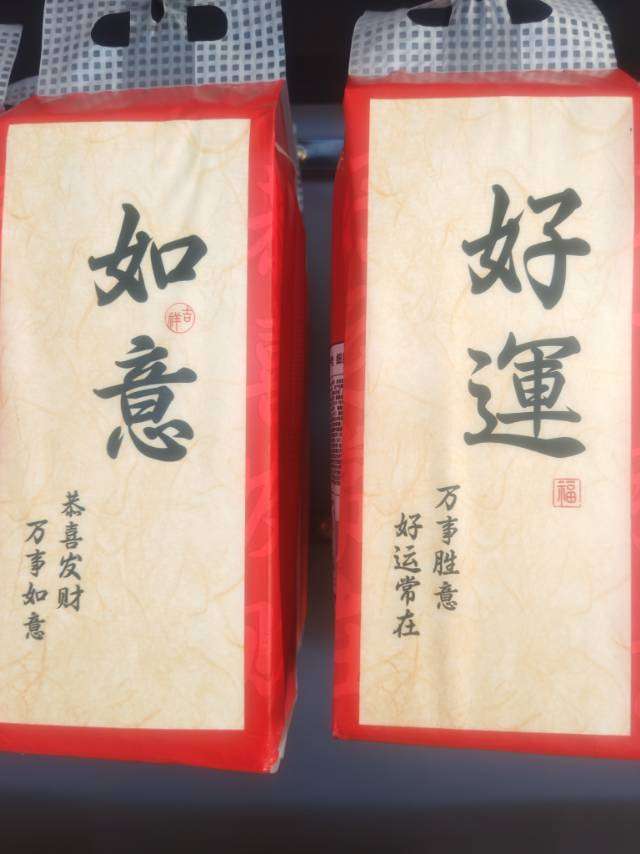 如意
吉祥
恭喜发财
万事如意
好運
福
万事胜意
好运常在